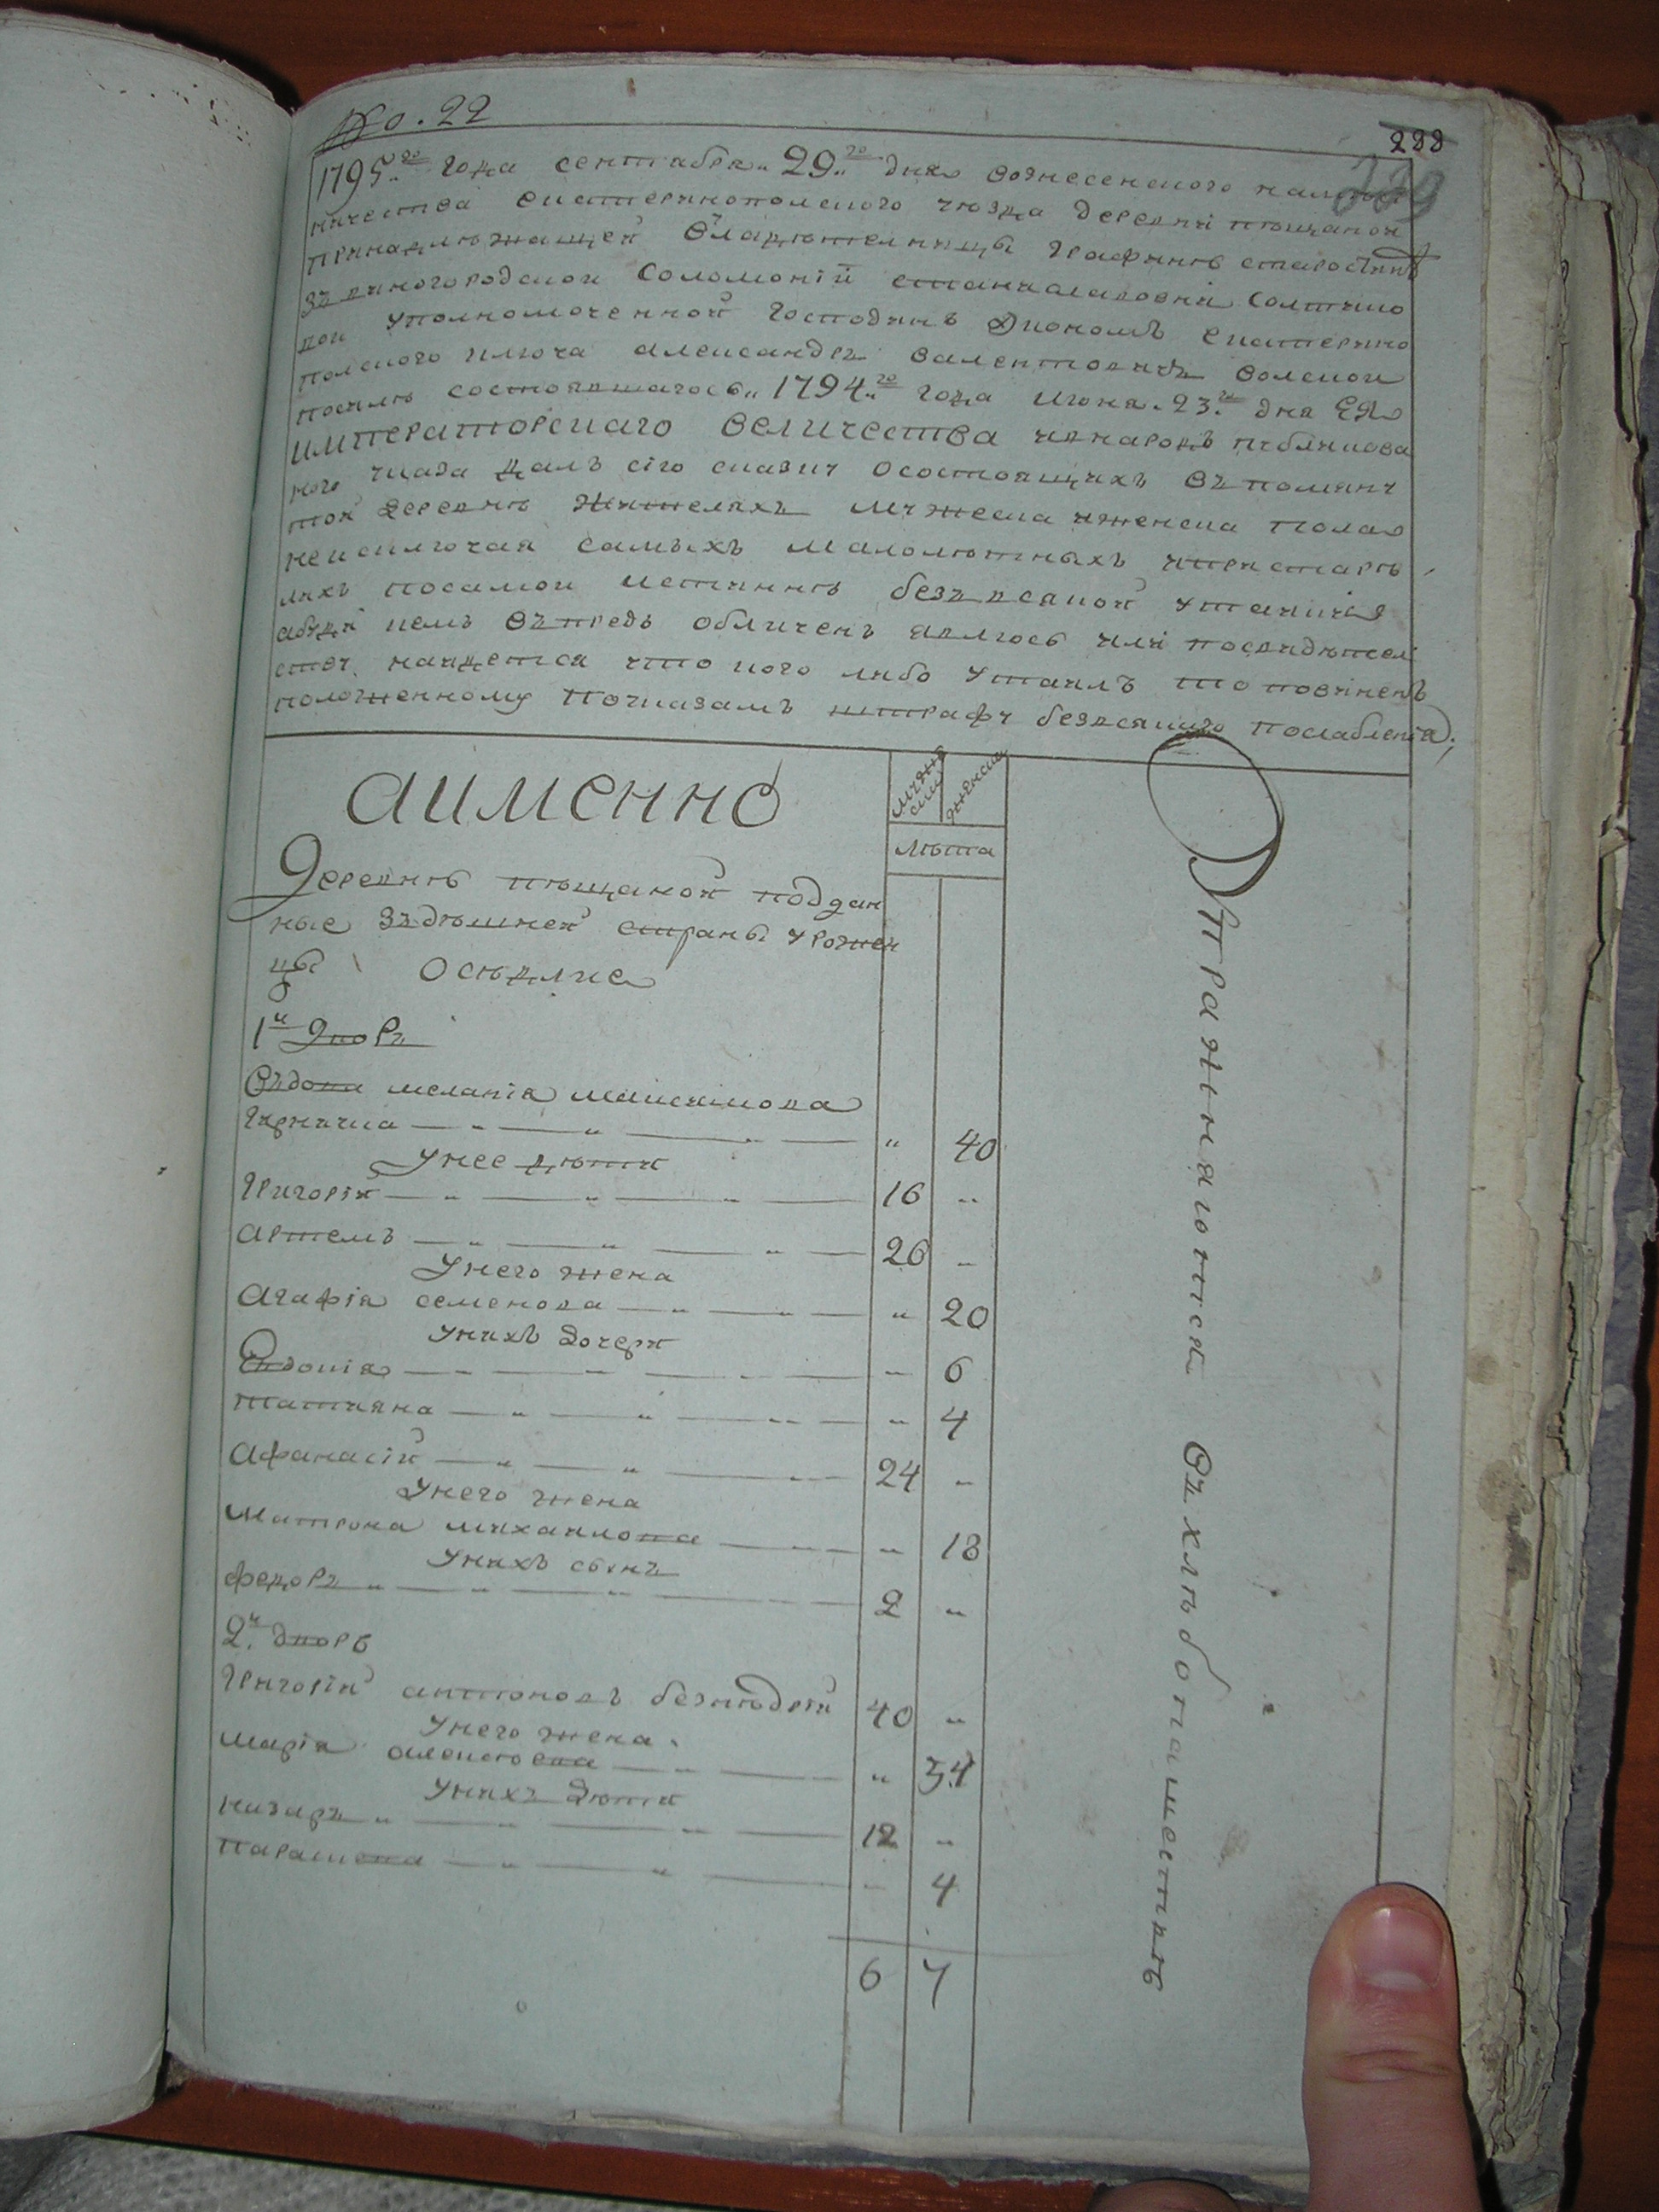 No. 22
288
289
1795.го года сентября „29.го дня вознесенского намѣст
ничества екатеринопольского уезда деревни пѣщаной
принадлѣжащей владѣтелницы графинѣ старостинѣ
звиногородской Соломонiй станиславовни Солтико
вой уполномоченной Господинъ Економъ екатерино
полского ключа александръ валентовичъ волской
посилѣ состоявшагось „1794.го года июня 23.го дня ЕЯ
императорскаго величества внародъ публикова
ного указа далъ сiю сказку осостоящихъ въ помяну
той деревнѣ жителяхъ мужеска иженска пола
неисключая самыхъ малолѣтныхъ ипрестарѣ
лихъ посамой истиннѣ безъ всякой утайки
абуди кемъ въпредь обличенъ явлюсь или посвидѣтел
ству найдется что кого либо утаилъ то повиненъ
положенному поуказамъ штрафу безвсякого послабленiя.
аименно
мужеска
женска
лѣта
Деревнѣ пѣщаной поддан
ные зъдѣшней страны урожен
цы осѣдлие
1й дворъ
въдова меланiя максимова
Гарничка „ 40
Унее дѣти
Григорiй 16 „
артемъ 26 „
Унего жена
агафiя семенова „ 20
Унихъ дочери
Евдокiя „ 6
татияна „ 4
афанасiй 24 „
Унего жена
матрона михайлова „ 18
Унихъ сынъ
федоръ 2 „
2й дворъ
Григорiй антоновъ безщодрiй 40 „
Унего жена
марiя алексеева „ 34
Унихъ дѣти
назаръ 12 „
параскева „ 4
6 7
Упражняготся въхлѣбопашествѣ